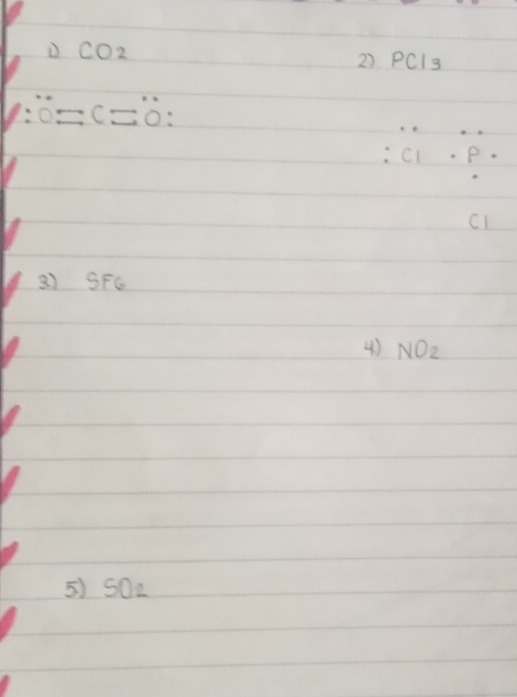 1) CO2
2) PCl3
:Ö=C=Ö:
: Cl · P ·
Cl
3) SF6
4) NO2
5) SO2